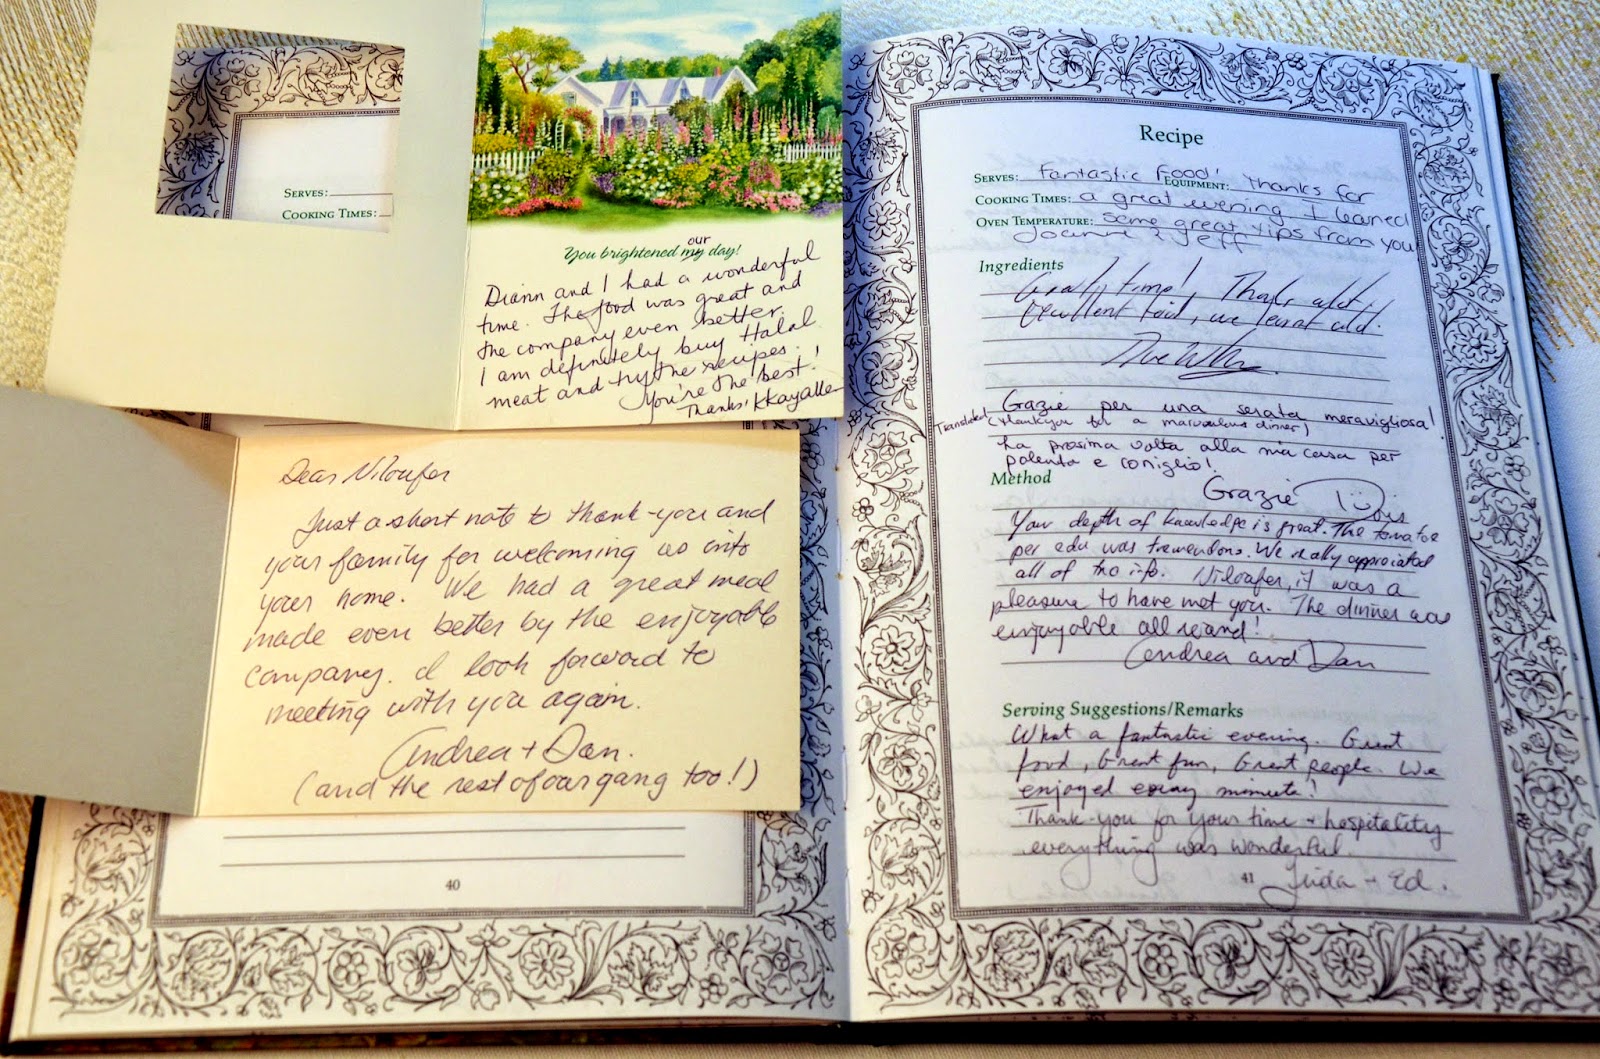 SERVES:
COOKING TIMES:
our
You brightened my day!
Diann and I had a wonderful
time. The food was great and
the company even better.
I am definitely buy Halal
meat and try the recipes.
You're the best!
Thanks! KKayalle
Dear Niloufer
Just a short note to thank-you and
your family for welcoming us into
your home. We had a great meal
made even better by the enjoyable
company. I look forward to
meeting with you again.
Andrea + Dan.
(and the rest of our gang too!)
40
Recipe
SERVES: Fantastic Food! EQUIPMENT: Thanks for
COOKING TIMES: a great evening I learned
OVEN TEMPERATURE: some great tips from you
Joanne & Jeff
Ingredients
time! Thanks
excellent food, we
Grazie per una serata meravigliosa!
Translated (thankyou for a marvoulous dinner)
La prosima volta alla mia casa per
polenta e coniglio!
Method
Grazie Doris
Your depth of knowledge is great. The tomatoe
per edu was tremendous. We really appreciated
all of the info. Niloufer, it was a
pleasure to have met you. The dinner was
enjoyable all round!
Andrea and Dan
Serving Suggestions/Remarks
What a fantastic evening. Great
food, Great fun, Great people. We
enjoyed every minute!
Thank-you for your time + hospitality
everything was wonderful.
41 + Ed.